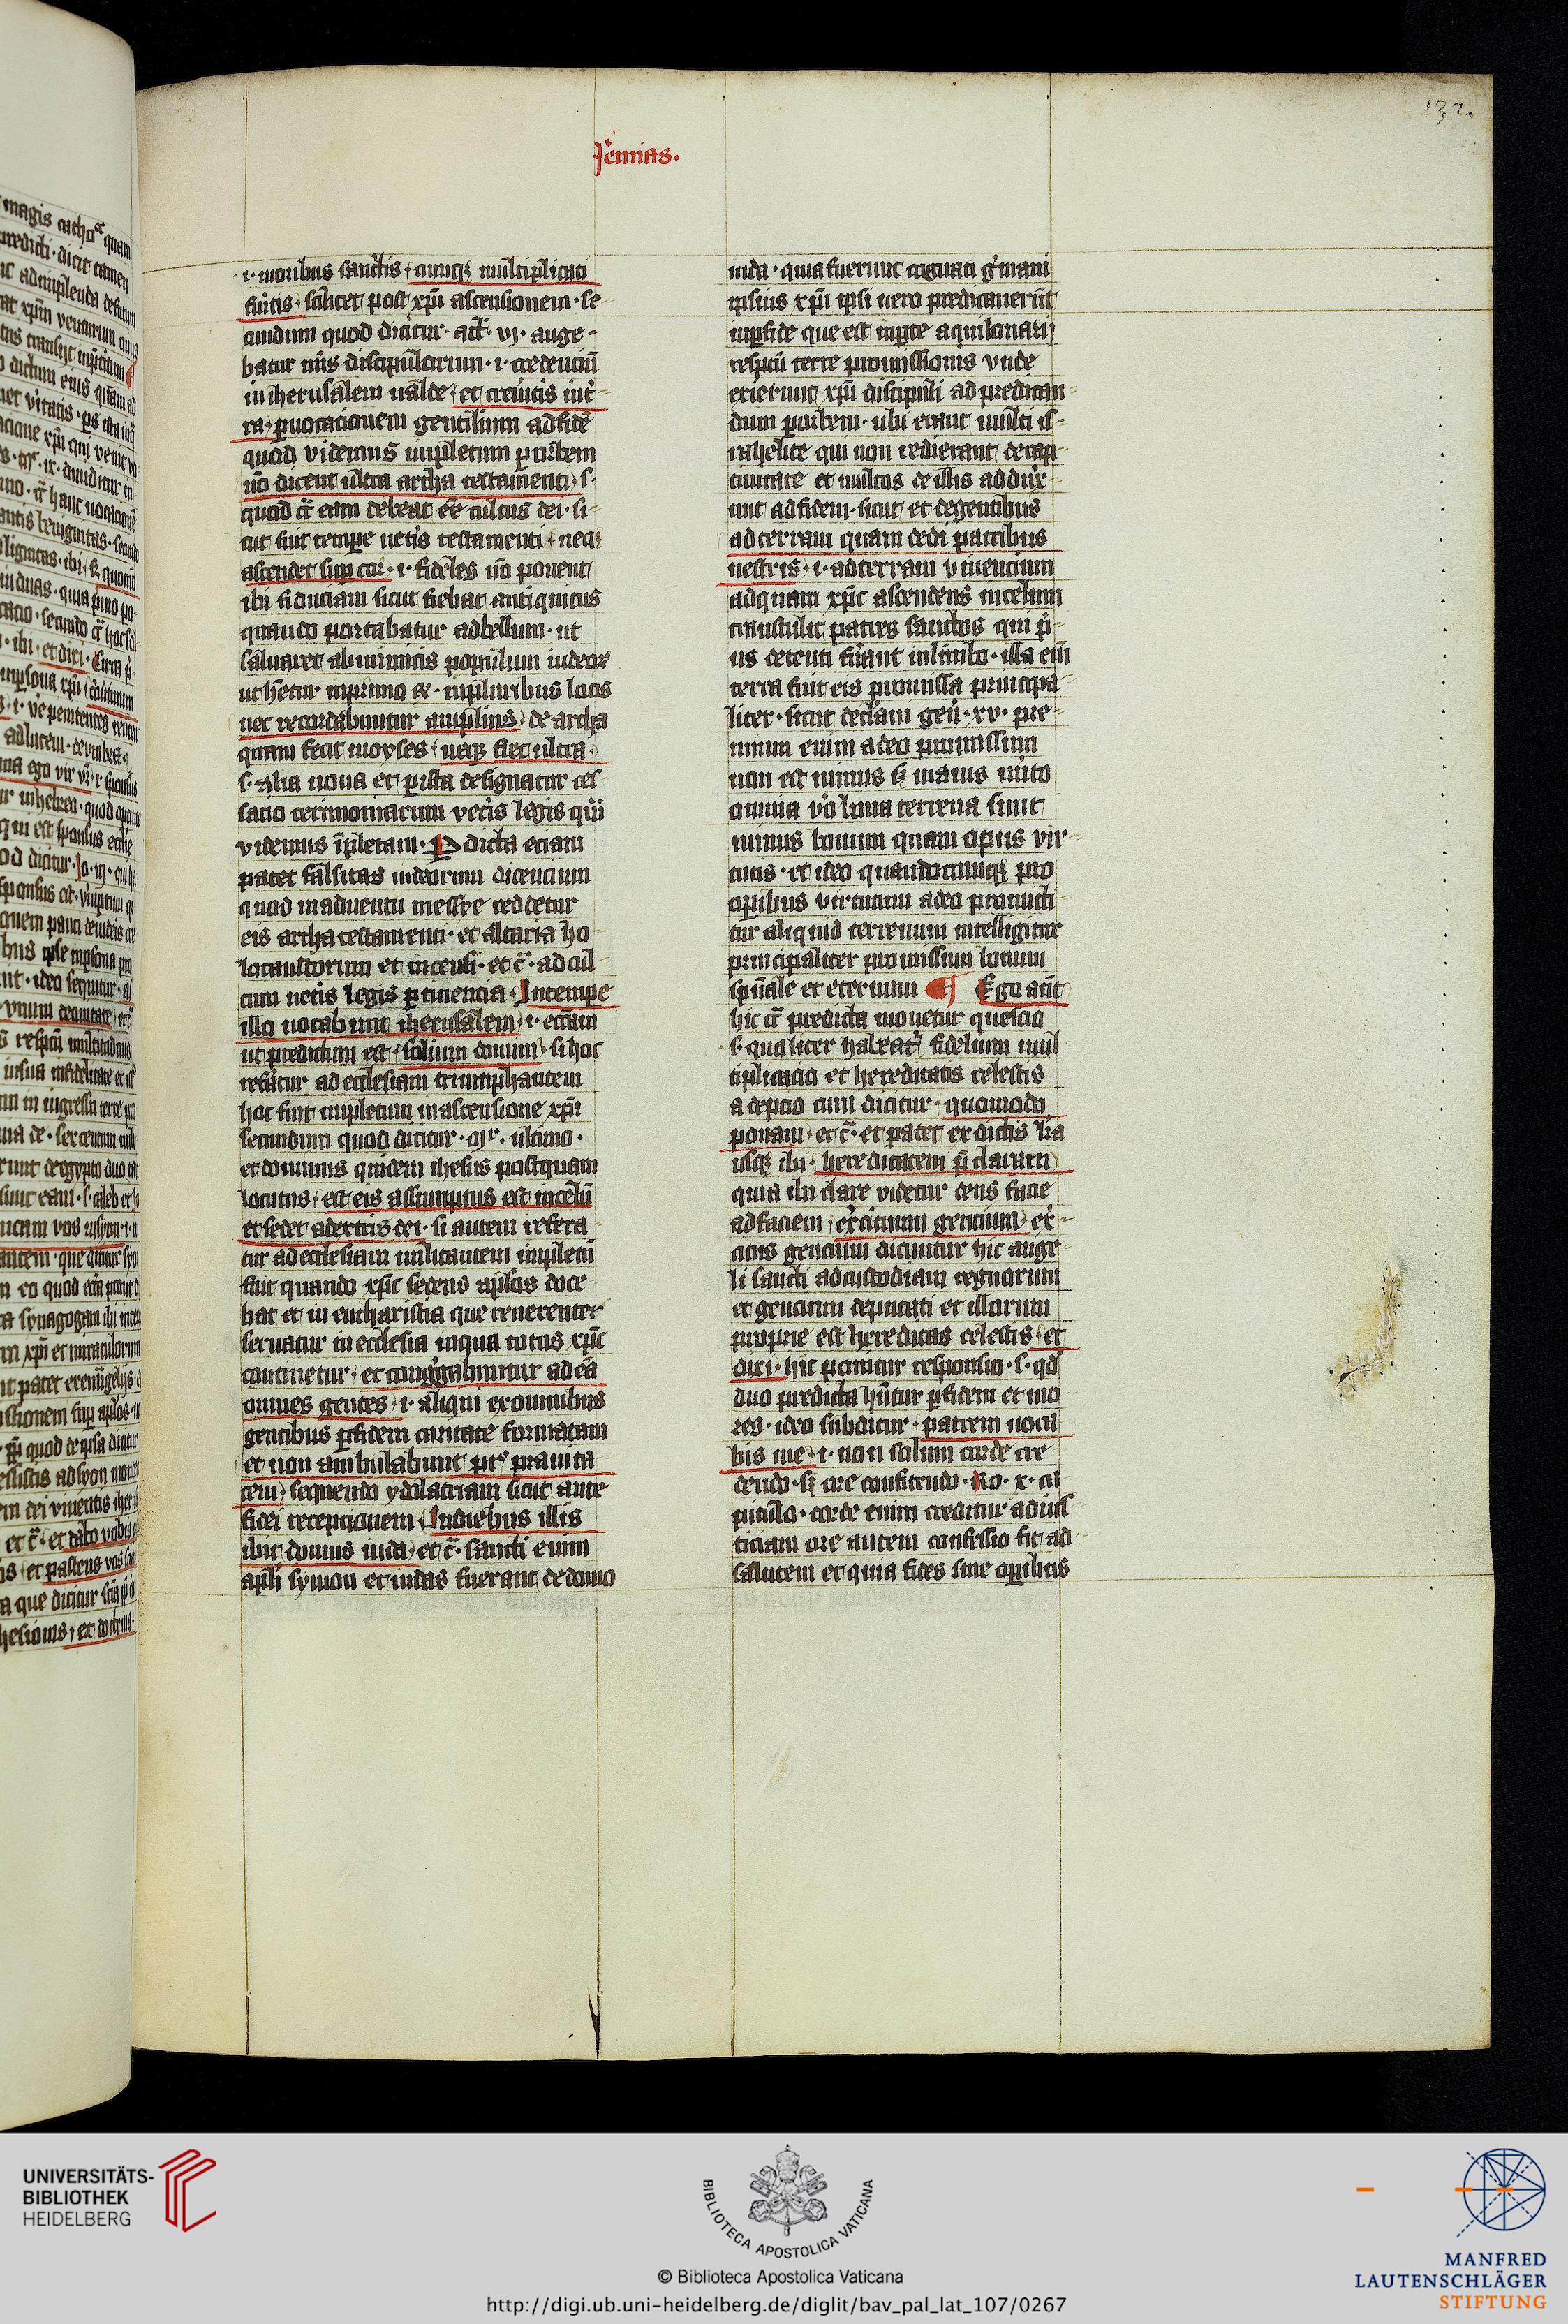 Jeremias.
132.
.i. moribus sanctis. cumq; multiplicati
fũitis. scilicet post xp̃i ascensionem. se-
cundum quod dicitur. act̃. vj. auge-
batur nũs discipulorum .i. credenciũ
in iherusalem ualde. et creũitis int̾-
ra. p̱ uocacionem gentilium ad fidẽ
quod videmus impletum p̱ orbem
nõ dicent ultra archa testamenti. s.
quod c̃ eam debeat eẽ cultus dei. si-
cut fuit tempe uetis testamenti. neq;
ascendet sup̱ cor. .i. fideles nõ ponent
ibi fiduciam sicut fiebat antiquitus
quando portabatur ad bellum. ut
saluaret ab inimicis populum iudeoꝝ
ut hẽtur in primo &. in pluribus locis
nec recordabuntur amplius. de archa
quam fecit moyses. neq; fiet ultra.
s. alia noua et p̱ ista designatur ces
satio cerimoniarum vetis legis quã
videmus ĩpletam. Pdicta eciam
patet falsitas iudeorum dicencium
quod in aduentu messye reddetur
eis archa testamenti. et altaria ho
locaustorum et incensi. et c̃. ad cul-
tum uetis legis p̱tinencia. In tempe
illo uocabunt iherusalem. .i. eccam
ut predictum est. solium domini. si hoc
refatur ad ecclesiam triumphantem
hoc fuit impletum in ascensione xp̃i
secundum quod dicitur. mr̃. ultimo.
et dominus quidem ihesus postquam
locutus. est eis assumptus est in celũ
et sedet a dextris dei. si autem refera
tur ad ecclesiam militantem impletũ
fuit quando xp̃c sedens aplos doce
bat et in eucharistia que reuerenter
seruatur in ecclesia in qua totus xp̃c
continetur. et congregabuntur ad eã
omnes gentes. .i. aliqui ex omnibus
gentibus p̱ fidem caritate formatam
et non ambulabunt pt9 prauita
tem. sequendo ydolatriam sicut ante
fidei recepcionem. In diebus illis
ibit domus iuda. et c̃. sancti enim
apli symon et iudas fuerant de domo
iuda. quia fuerunt cognati g̾mani
ipsius xp̃i ipsi uero predicauerũt
in p̱fide que est in p̱te aquilonarij
respcũ terre promissionis vnde
exierunt xp̃i discipuli ad predican-
dum p̱ orbem. ubi erant multi is-
rahelite qui non redierant de cap-
tiuitate et multos de illis addux̾-
unt ad fidem. sicut et degentibus
ad terram quam dedi patribus
uestris. .i. ad terram viuencium
ad quam xp̃c ascendens in celum
transtulit patres sanctos qui p̾-
us detenti fũant in limbo. illa eñ
terra fuit eis promissa principa-
liter. sicut declaui geñ. xv. pre-
mium enim a deo promissum
non est minus s; maius mĩto
omnia võ bona terrena sunt
minus bonum quam opus vir-
tutis. et ideo quandocumq; pro
op̱ibus virtutum a deo promitti
tur aliquid terrenum intelligitur
principaliter promissum bonum
spũale et eternum ¶ Ego aũt
hic c̃ predicta mouetur questio
s. qualiter habeat̾ fidelium mul
tiplicacio et hereditatis celestis
adepcio cum dicitur. quomodo
ponam. et c̃. et patet ex dictis lr̃a
usq; ibi. hereditatem p̃claram
quia ibi clare videtur deus facie
ad faciem. ex̾cituum gencium. ex̾-
citus gencium dicuntur hic ange-
li sancti ad custodiam regnorum
et gencium deputati et illorum
proprie est hereditas celestis. et
dixi. hic ponitur responsio. s. qd̾
duo predicta hñtur p̱ fidem et mo
res. ideo subditur. patrem uoca
bis me. .i. non solum corde cre
dendo. s; ore confitendo. Ro. x. ca
pitulo. corde enim creditur ad ius
ticiam ore autem confessio fit ad-
salutem et quia fides sine op̱ibus
UNIVERSITÄTS-
BIBLIOTHEK
HEIDELBERG
BIBLIOTECA APOSTOLICA VATICANA
© Biblioteca Apostolica Vaticana
http://digi.ub.uni-heidelberg.de/diglit/bav_pal_lat_107/0267
MANFRED
LAUTENSCHLÄGER
STIFTUNG